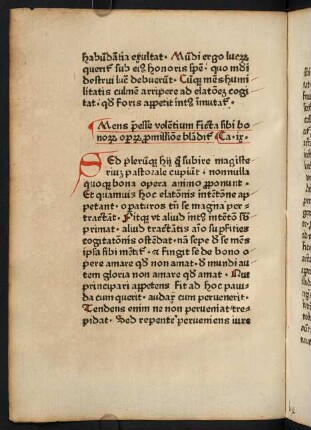 habūdātia exultat. Mūdi ergo lucrꝫ
querit sub eiꝰ honoris spē. quo mūdi
destrui lucꝛ debuerūt. Cūqꝫ mēs humi
litatis culmē arripere ad elatōeꝫ cogi
tat. qd foris appetit intꝰ īmutat.
Mens p̄esse volētium ficta sibi bo
noꝝ opeꝝ pmissiōe blādit Ca. ix.
Sed plerūqꝫ hij q̄ subire magiste
riuꝫ pastorale cupiūt. nonnulla
quoqꝫ bona opera animo pponunt.
Et quamuis hoc elatōnis intētōne ap
petant. opaturos tn̄ se magna per-
tractāt. Fitqꝫ vt aliud intꝰ intētō sū
primat. aliud tractātis aīo supficies
cogitatōnis ostēdat. nā sepe d̄ se mēs
ipsa sibi mētit. ⁊ fingit se de bono o
pere amare qd non amat. d̄ mundi au
tem gloria non amare qd amat. Que
principari appetens fit ad hoc paui-
da cum querit. audax cum peruenerit.
Tendens enim ne non perueniat tre-
pidat. Sed repente perueniens iure